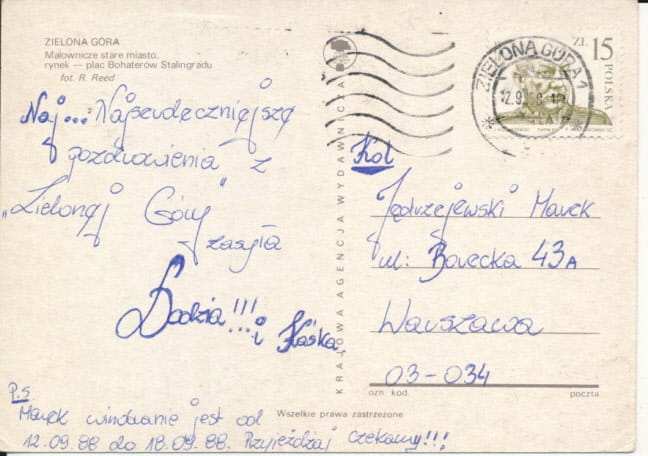 ZIELONA GÓRA
Malownicze stare miasto,
rynek — plac Bohaterów Stalingradu
fot. R. Reed
Naj... Najserdeczniejsze
pozdrowienia z
„Zielonej Góry"
zasyła
Dodzia!!! i Kaśka
P.S
Marek winobranie jest od
12.09.88 do 18.09.88. Przyjeżdżaj czekamy!!!
Wszelkie prawa zastrzeżone
KRAJOWA AGENCJA WYDAWNICZA
ZIELONA GÓRA 1
ZŁ 15
POLSKA
Kol
Jędrzejewski Marek
ul: Borecka 43A
Warszawa
03-034
ozn kod
poczta